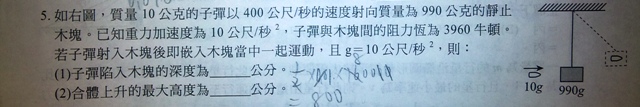 5. 如右圖，質量 10 公克的子彈以 400 公尺/秒的速度射向質量為 990 公克的靜止
木塊。已知重力加速度為 10 公尺/秒²，子彈與木塊間的阻力恆為 3960 牛頓。
若子彈射入木塊後即嵌入木塊當中一起運動，且 g=10 公尺/秒²，則：
(1)子彈陷入木塊的深度為______公分。
(2)合體上升的最大高度為______公分。
= 800
10g 990g